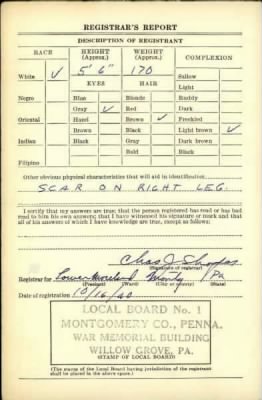 REGISTRAR'S REPORT
DESCRIPTION OF REGISTRANT
RACE HEIGHT (Approx.) WEIGHT (Approx.) COMPLEXION
White ✓ 5' 6" 170 Sallow
EYES HAIR Light
Negro Blue Blonde Ruddy
Gray ✓ Red Dark
Oriental Hazel Brown ✓ Freckled
Brown Black Light brown ✓
Indian Black Gray Dark brown
Bald Black
Filipino
Other obvious physical characteristics that will aid in identification
SCAR ON RIGHT LEG.
I certify that my answers are true; that the person registered has read or has had read to him his own answers; that I have witnessed his signature or mark and that all of his answers of which I have knowledge are true, except as follows:
Chas J.
(Signature of registrar)
Registrar for Lower Moreland Montg PA
(Precinct) (Ward) (City or county) (State)
Date of registration 10/16/40
LOCAL BOARD No. 1
MONTGOMERY CO., PENNA.
WAR MEMORIAL BUILDING
WILLOW GROVE, PA.
(STAMP OF LOCAL BOARD)
(The stamp of the Local Board having jurisdiction of the registrant shall be placed in the above space.)